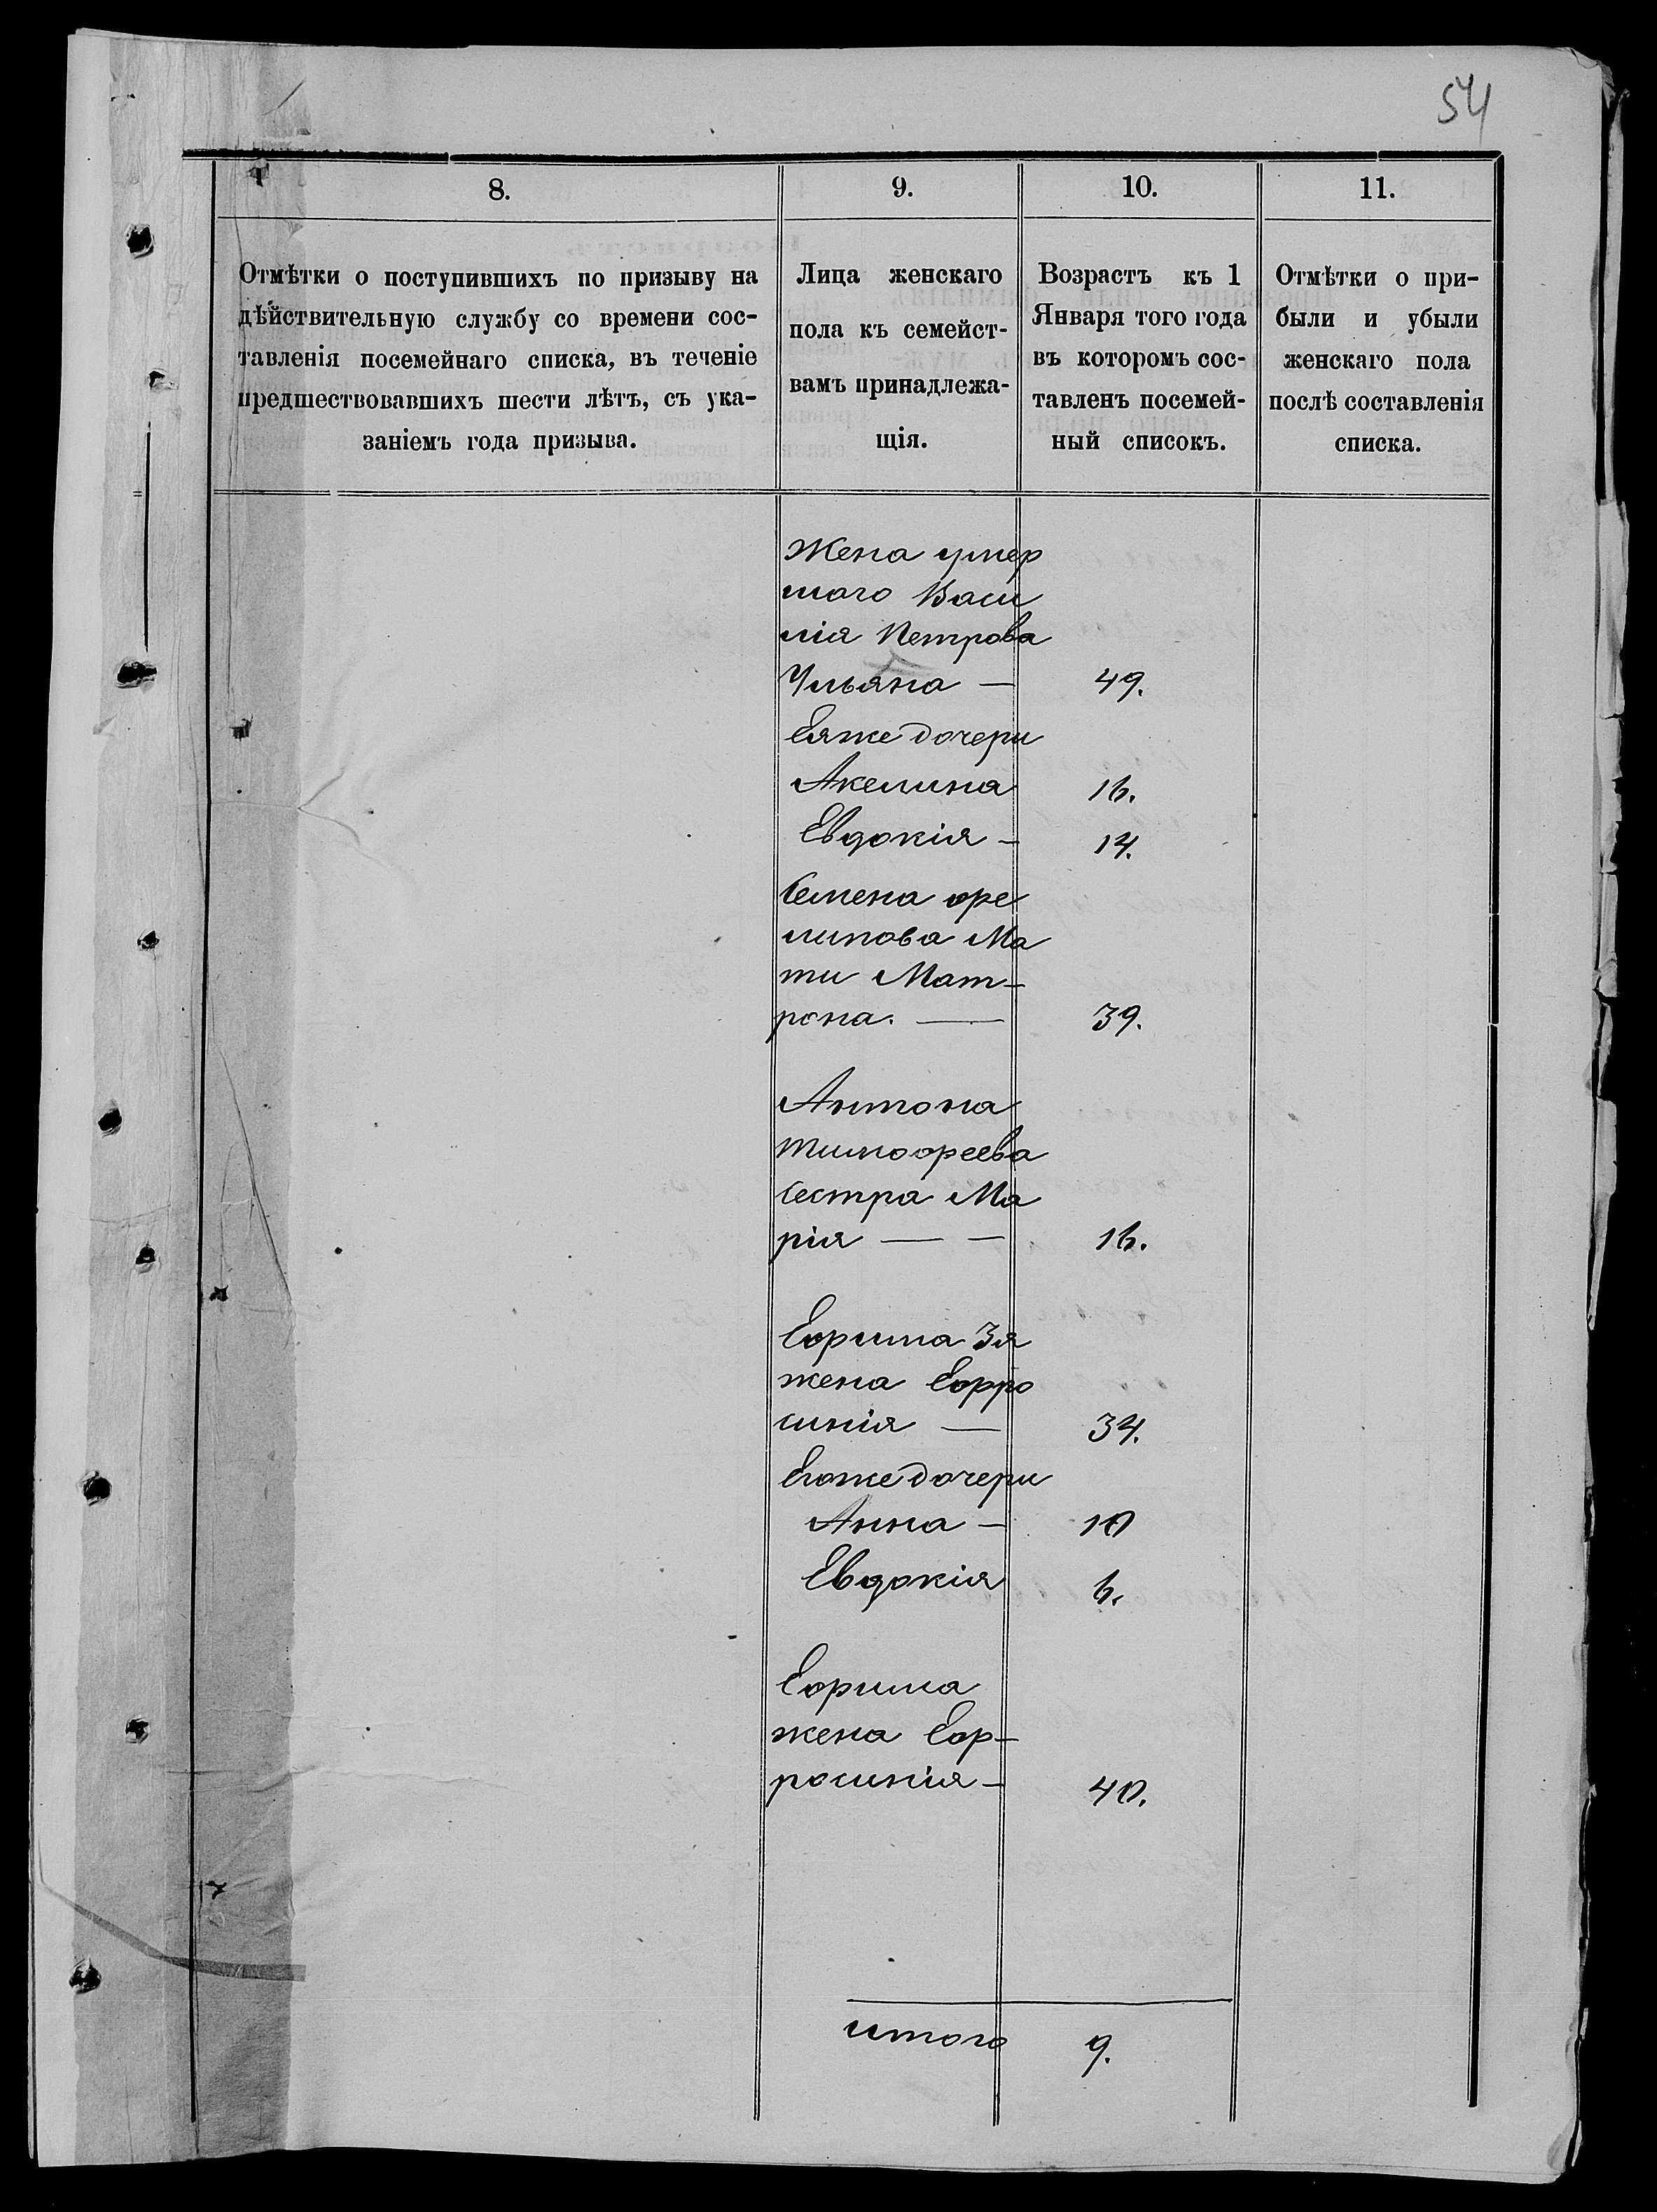 54
8. 9. 10. 11.
Отмѣтки о поступившихъ по призыву на
дѣйствительную службу со времени сос-
тавленія посемейнаго списка, въ теченіе
предшествовавшихъ шести лѣтъ, съ ука-
заніемъ года призыва.
Лица женскаго
пола къ семейст-
вамъ принадлежа-
щія.
Возрастъ къ 1
Января того года
въ которомъ сос-
тавленъ посемей-
ный списокъ.
Отмѣтки о при-
были и убыли
женскаго пола
послѣ составленія
списка.
Жена умер
шаго Васи
лія Петрова
Ульяна — 49.
Еяже дочери
Акелина 16.
Евдокія — 14.
Семена Фи
липова Ма
ти Мат-
рона. — 39.
Антона
Тимофеева
Сестра Ма
рія — — 16.
Ефима 3я
жена Ефро
синія — 34.
Егоже дочери
Анна — 10
Евдокія 6.
Ефима
жена Еф-
росинія — 40.
итого 9.